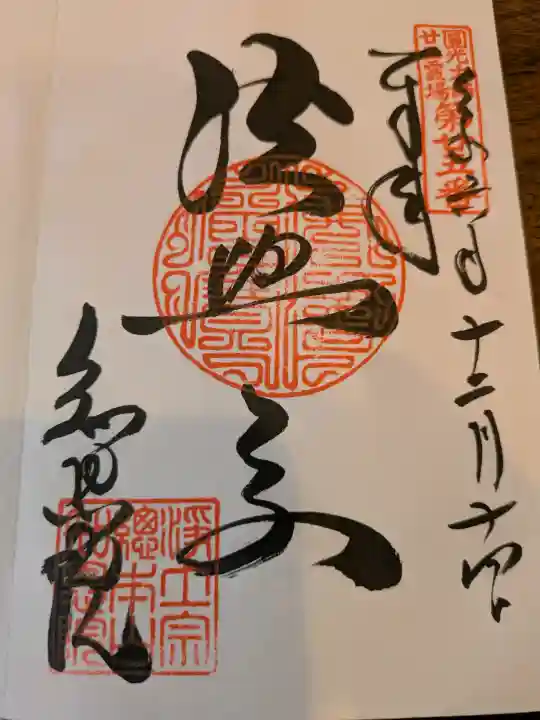 圓光大師
廿五霊場
第廿五番
奉拝
十二月十四日
法然上人
知恩院
浄土宗
總本山
知恩院